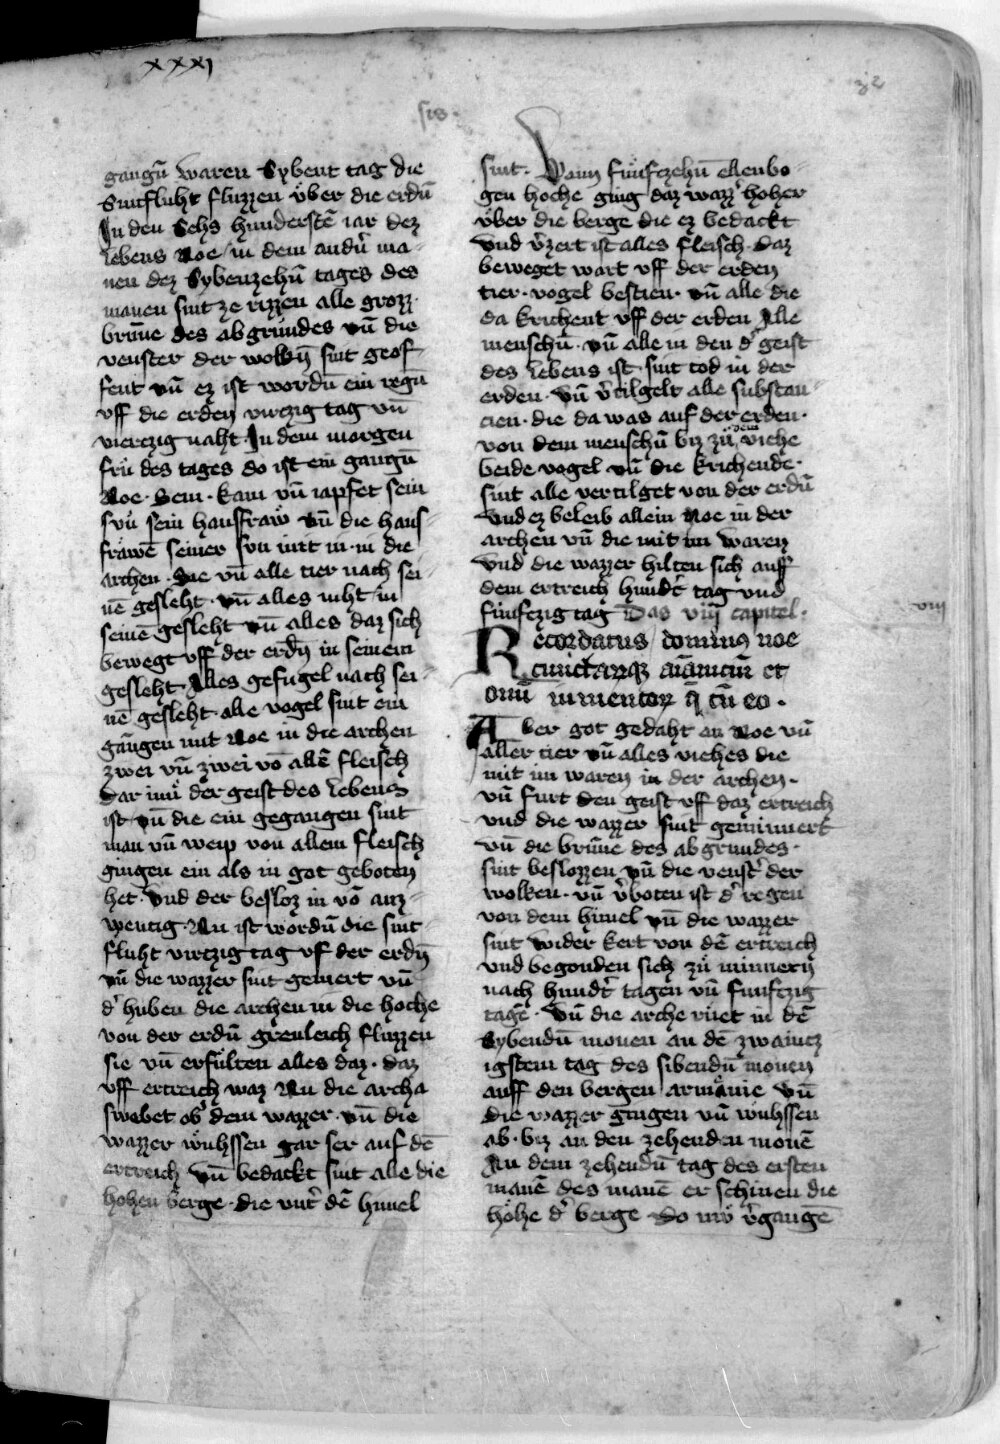 xxxj
32
gangū waren Sybent tag die
Sintfluht fluzzen v̈ber die erdū
In den Sehs hunderstē iar dez
lebens Noe in dem andn̄ ma-
nen dez Sybenzehū tages des
manen sint ze rizzen alle grozz
brūne des abgründes vn̄ die
venster der wolkn̄ sint geof-
fent vn̄ ez ist wordū ein regū
vff die erden virtzig tag vn̄
viertzig naht · In dem morgen
frü des tages do ist ein gangū
Noe · Sem · kam vn̄ iapfet sein
svn̈ sein hausfraw̄ vn̄ die haus-
frawē seiner svn mit in · in die
archen · Sie vn̄ alle tier nach sei-
nē gesleht · vn̄ alles viht in
seinē gesleht vn̄ alles daz sich
bewegt vff der erdn̄ in seinem
gesleht · Alles gefugel nach sei-
nē gesleht · alle vogel sint ein
gangen mit Noe in die archen
zwei vn̄ zwei vō allē fleisch
Dar inn̄ der geist des lebens
ist vn̄ die ein gegangen sint
man vn̄ weip von allem fleisch
gingen ein als in got geboten
het · Vnd der besloz in vō auz-
wentig · Nu ist wordū die sint-
fluht virtzig tag vf der erdn̄
vn̄ die wazzer sint gemert vn̄
d' huben die archen in die hoche
von der erdū greuleich fluzzen
sie vn̄ erfülten alles daz · daz
vff ertreich waz Nu die archa
swebet ob dem wazzer · vn̄ die
wazzer wuhssen gar ser auf dē
ertreich vn̄ bedackt sint alle die
hohen berge · die vnt' dē himel
sint · Wann fünfczehū ellenbo-
gen hoche ging daz wazz' hoher
v̈ber die berge die ez bedackt
Vnd v'zert ist alles fleisch · daz
beweget wart vff der erden
tier · vogel bestien · vn̄ alle die
da krichent vff der erden Alle
menschū · vn̄ alle in den d' geist
des lebens ist · sint tod in der
erden · vn̄ v'tilgelt alle substan-
cien · die da was auf der erden ·
von dem menschū biz zü dem viehe
beide vogel vn̄ die krichende ·
sint alle vertilget von der erdū
Vnd ez beleib allein Noe in der
archen vn̄ die mit im waren
Vnd die wazzer hilten sich auff
dem ertreich hundt' tag vnd
fünfczig tag Das viij capitel ·
viij
Recordatus dominus noe
cunctarumque aīancium et
omū iumentorum q̄ cū eo ·
Aber got gedaht an Noe vn̄
aller tier vn̄ alles viehes die
mit im waren in der archen ·
vn̄ furt den geist vff daz ertreich
vnd die wazzer sint geminnert
vn̄ die brūne des abgrundes ·
sint beslozzen vn̄ die venst' der
wolken · vn̄ v'boten ist d' regen
von dem himel vn̄ die wazzer
sint wider kert von dē ertreich
vnd begonden sich zü minnern
nach hundt' tagen vn̄ funfczig
tagē · Vn̄ die arche ruet in dē
Sybendū monen an dē zwaintz
igstem tag des sibendū monen
auff den bergen armänie vn̄
die wazzer gingen vn̄ wuhssen
ab · biz an den zehenden monē
An dem zehendū tag des ersten
manē des manē er schinen die
höhe d' berge Do nw̄ v'gangē